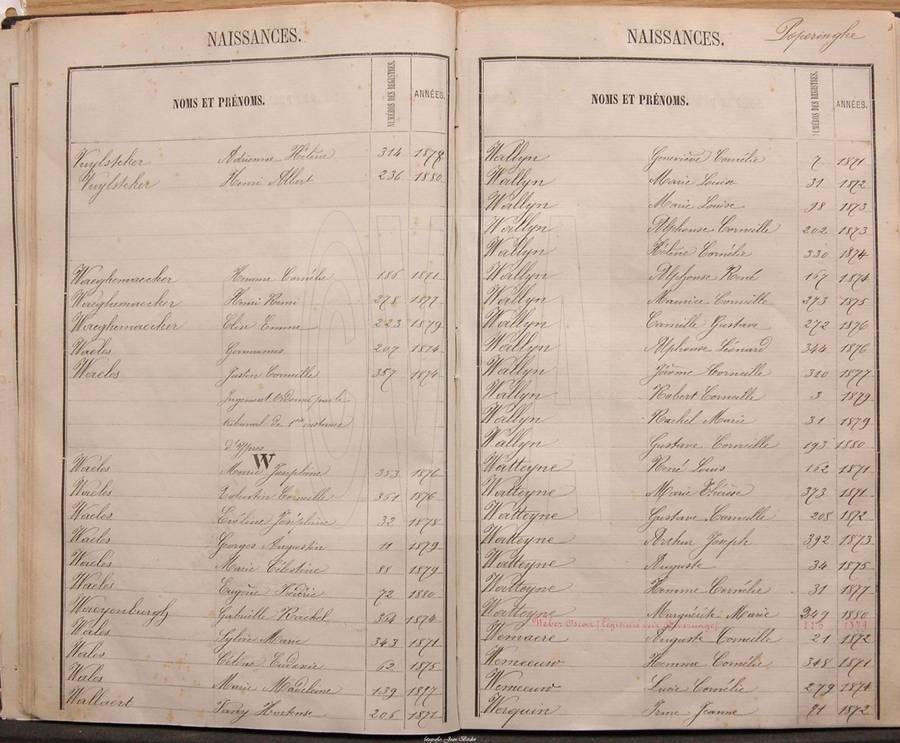 NAISSANCES.
NOMS ET PRÉNOMS. NUMÉROS DES REGISTRES. ANNÉES.
Vuylsteker Adrienne Hélène 314 1878
Vuylsteker Henri Albert 236 1880
Waeghemaecker Emma Cornélie 186 1871
Waeghemaecker Henri Remi 278 1877
Waeghemaecker Elin Emma 223 1879
Waeles Germaines 207 1874
Waeles Justin Corneille 357 1874
Jugement ordonné par le
tribunal de 1re instance
d'Ypres
W
Waeles Marie Joséphine 353 1876
Waeles Valentin Corneille 351 1876
Waeles Evéline Joséphine 32 1878
Waeles Georges Augustin 11 1879
Waeles Marie Célestine 88 1879
Waeles Eugène Fidérie 72 1880
Waeyenburgh Gabrielle Rachel 364 1874
Wales Sylvie Marie 343 1871
Wales Célina Eudoxie 62 1875
Wales Marie Madeleine 139 1877
Wallaert Fany Hortense 206 1871
NAISSANCES. Poperinghe
NOMS ET PRÉNOMS. NUMÉROS DES REGISTRES. ANNÉES.
Wallyn Geneviève Cornélie 7 1871
Wallyn Marie Louise 31 1872
Wallyn Marie Louise 98 1873
Wallyn Alphonse Corneille 202 1873
Wallyn Hélène Cornélie 330 1874
Wallyn Alphonse René 167 1874
Wallyn Maurice Corneille 273 1875
Wallyn Camille Gustave 272 1876
Wallyn Alphonse Léonard 344 1876
Wallyn Jérôme Corneille 320 1877
Wallyn Robert Corneille 3 1879
Wallyn Rachel Marie 31 1879
Wallyn Gustave Corneille 193 1880
Watteyne René Louis 162 1871
Watteyne Marie Thérèse 373 1871
Watteyne Gustave Corneille 208 1872
Watteyne Arthur Joseph 392 1873
Watteyne Auguste 34 1875
Watteyne Emma Cornélie 31 1877
Watteyne Marguérite Marie 249 1880
Weber Oscar (légitimé par mariage) 225 1879
Wemaere Auguste Corneille 21 1872
Wemeeuw Emma Cornélie 348 1871
Wemeeuw Lucie Cornélie 279 1874
Werquin Irma Jeanne 91 1872